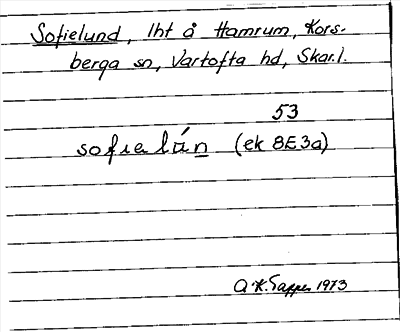 Sofielund, lht å Hamrum, Kors-
berga sn, Vartofta hd, Skar.l.
53
sofielún (ek 8E3a)
A.K. Tapper 1973